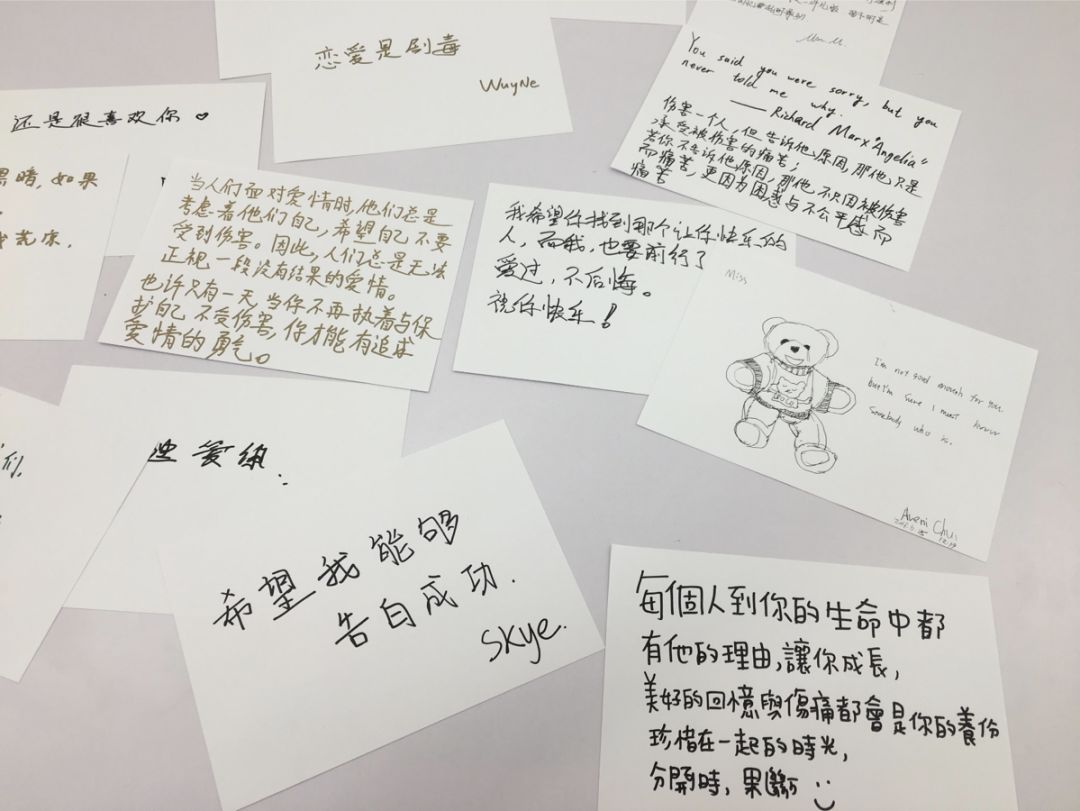 恋爱是剧毒
WuyNe
You said you were sorry, but you
never told me why.
—— Richard Marx "Angelia"
伤害一个人,但告诉他原因,那他只是
承受被伤害的痛苦;
若你不告诉他原因,那他不只因被伤害
而痛苦,更因为困惑与不公平感而
痛苦
还是很喜欢你♡
如果
当人们面对爱情时,他们总是
考虑着他们自己,希望自己不要
受到伤害。因此,人们总是无法
正视一段没有结果的爱情。
也许只有一天,当你不再执着与保
护自己不受伤害,你才能有追求
爱情的勇气。
我希望你找到那个让你快乐的
人,而我,也要前行了
爱过,不后悔。
祝你快乐!
Miss
I'm not good enough for you
but I'm sure I must know
somebody who is.
Averi Chu.
们,
希望我能够
告白成功.
Skye.
每個人到你的生命中都
有他的理由,讓你成長,
美好的回憶與傷痛都會是你的養份
珍惜在一起的時光,
分開時,果斷